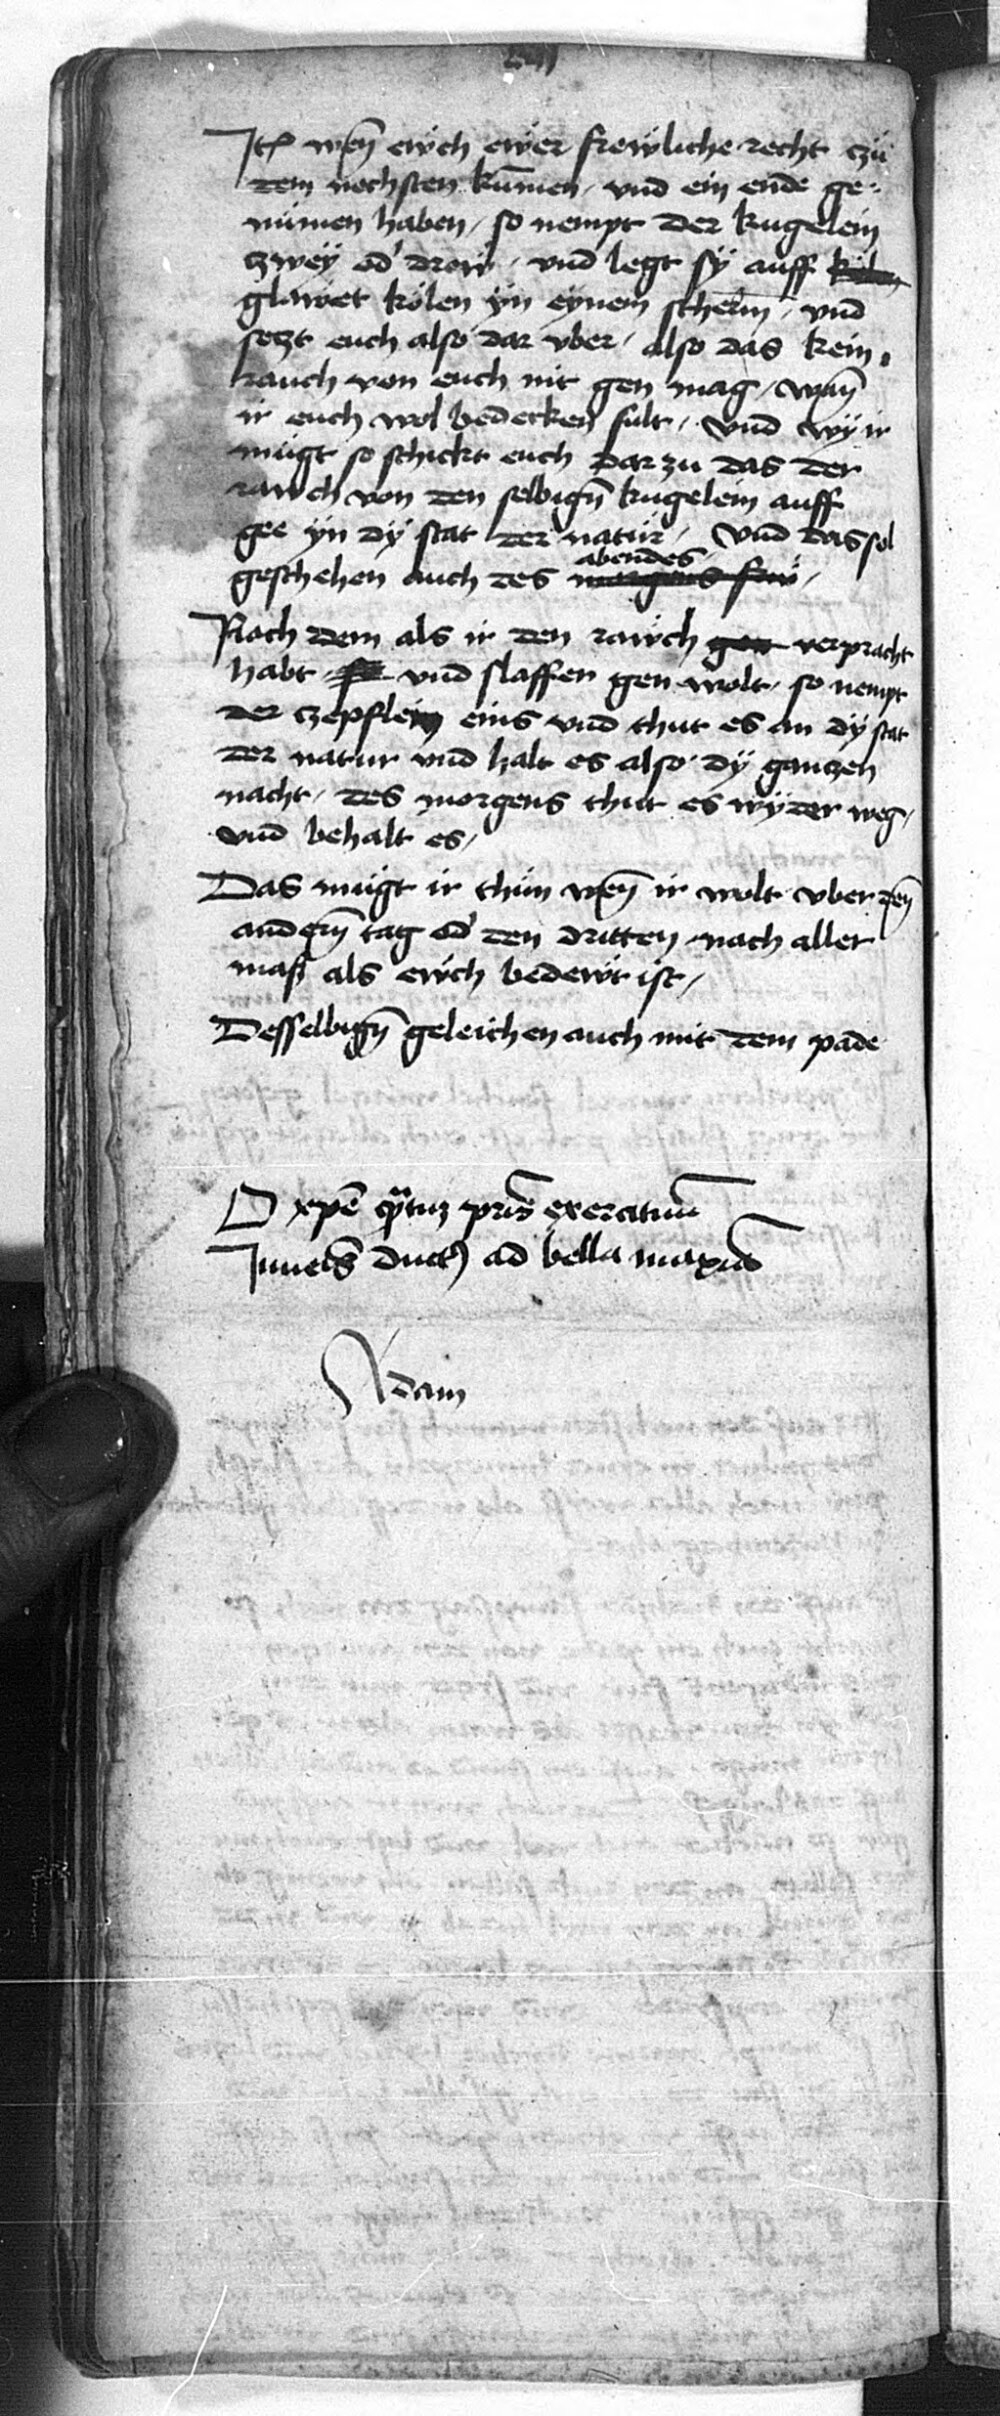 Itē wen̄ ewch ewer frewliche recht czu
dem nechsten kūmen / vnd ein ende ge:
nūmen haben / so nempt der kugelein
czwey od' drew / vnd legt sy auff
glawet kölen yn eynem scherm / vnd
seczt euch also dar vber / also das kein
rauch von euch nit gen mag / wan̄
ir euch wol bedecken sult / vnd wy ir
mügt so schickt euch dar zu das der
rawch von den selbign̄ kugelein auff
gee yn dy stat der natur / vnd das sol
geschehen auch des abendes /
Noch dem als ir den rawch verpracht
habt vnd slaffen gen wolt / so nempt
der czepflein eins vnd thut es an dy stat
der natur vnd halt es also dy ganczen
nacht / des morgens thut es wyder weg /
vnd behalt es /
Das mügt ir thun wen̄ ir wolt vber den̄
andern̄ tag od' den dritten nach aller
maß als ewch bedewt ist /
Desselbign̄ geleichen auch mit dem pade
O xpē exercitium
ad bella
Adam